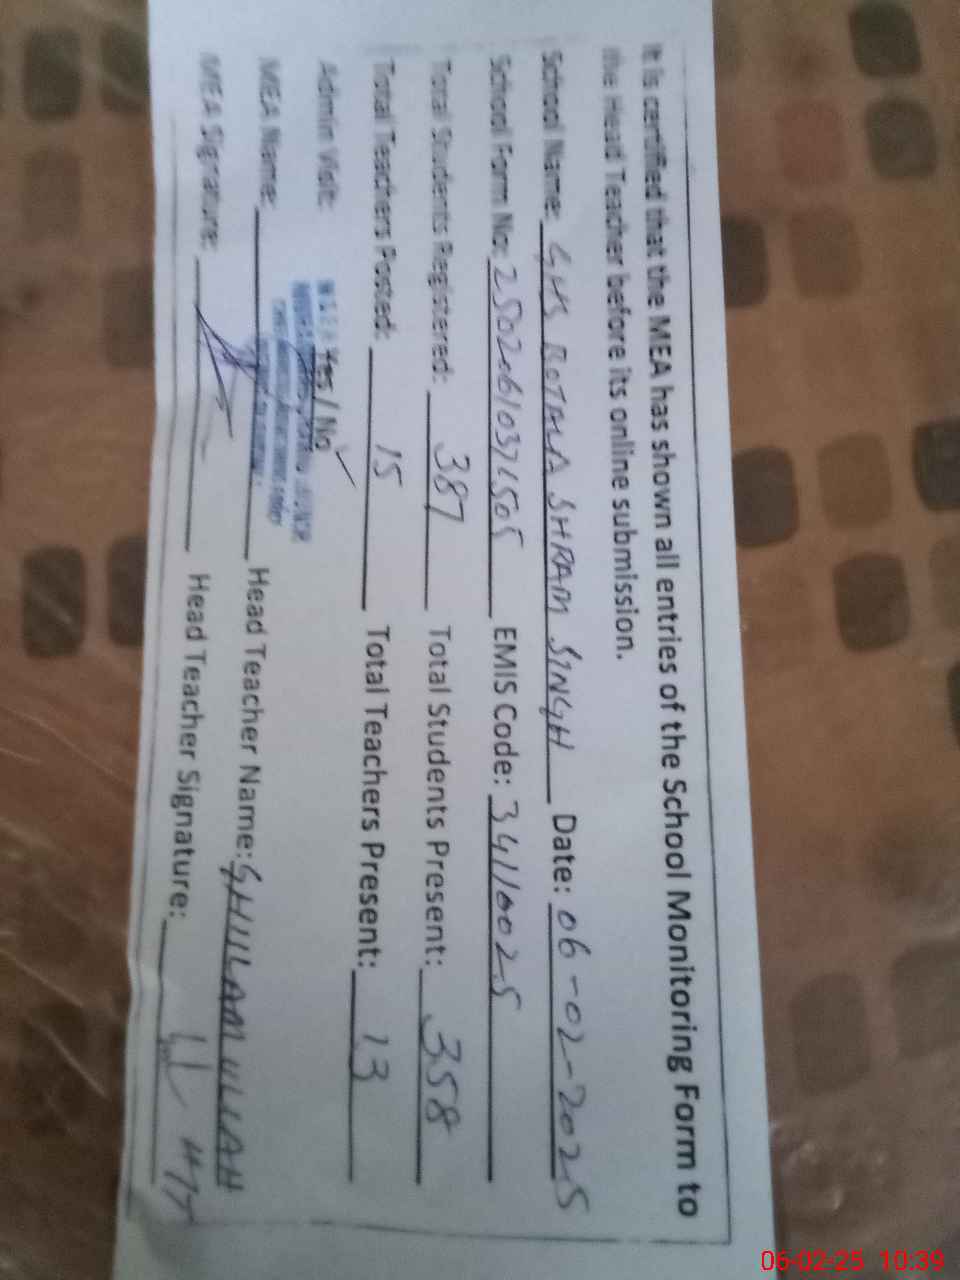 It is certified that the MEA has shown all entries of the School Monitoring Form to
the Head Teacher before its online submission.
School Name: GHS BOTALA SHRAM SINGH Date: 06-02-2025
School Form No: EMIS Code: 34110025
Total Students Registered: 387 Total Students Present: 358
Total Teachers Posted: 15 Total Teachers Present: 13
Admin Visit: Yes / No ✓
MEA Name: Head Teacher Name: GHULAM ULLAH
MEA Signature: Head Teacher Signature:
06-02-25 10:39